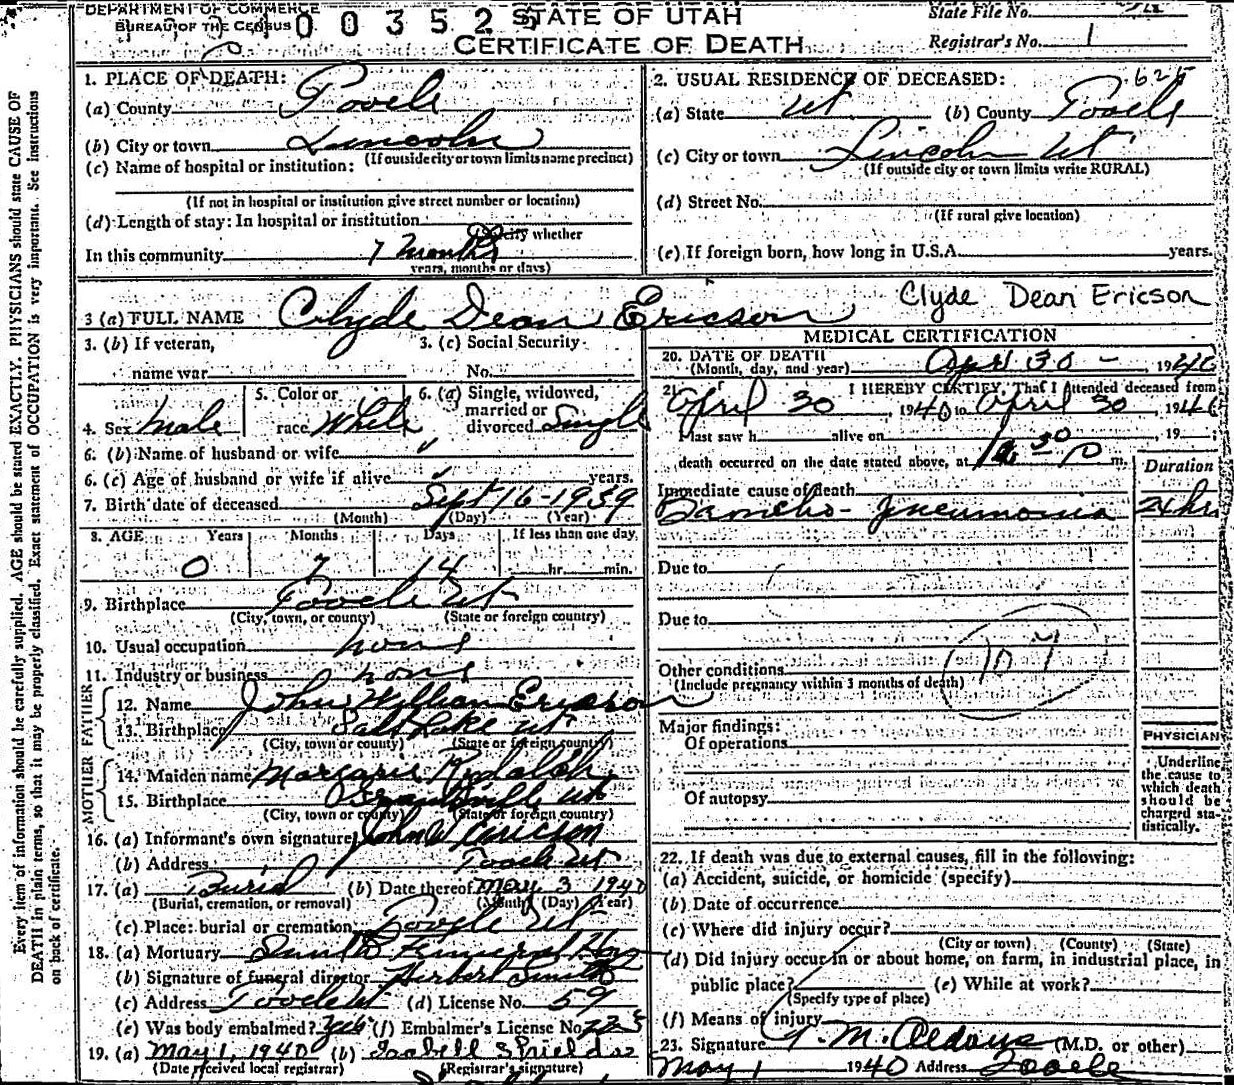 DEPARTMENT OF COMMERCE
BUREAU OF THE CENSUS
0 0 3 5 2
STATE OF UTAH
CERTIFICATE OF DEATH
State File No.
Registrar's No. 1
Every item of information should be carefully supplied. AGE should be stated EXACTLY. PHYSICIANS should state CAUSE OF
DEATH in plain terms, so that it may be properly classified. Exact statement of OCCUPATION is very important. See instructions
on back of certificate.
1. PLACE OF DEATH:
(a) County Tooele
(b) City or town Lincoln
(If outside city or town limits name precinct)
(c) Name of hospital or institution:
(If not in hospital or institution give street number or location)
(d) Length of stay: In hospital or institution
(Specify whether
In this community 7 months
years, months or days)
2. USUAL RESIDENCE OF DECEASED: 625
(a) State Ut (b) County Tooele
(c) City or town Lincoln Ut
(If outside city or town limits write RURAL)
(d) Street No.
(If rural give location)
(e) If foreign born, how long in U.S.A. years.
3 (a) FULL NAME Clyde Dean Ericson
Clyde Dean Ericson
3. (b) If veteran,
name war
3. (c) Social Security
No.
4. Sex Male
5. Color or
race White
6. (a) Single, widowed,
married or
divorced Single
6. (b) Name of husband or wife
6. (c) Age of husband or wife if alive years.
7. Birth date of deceased Sept 16-1939
(Month) (Day) (Year)
8. AGE Years Months Days If less than one day
0 7 14 hr. min.
9. Birthplace Tooele Ut
(City, town, or county) (State or foreign country)
10. Usual occupation none
11. Industry or business none
FATHER
12. Name John William Ericson
13. Birthplace Salt Lake Ut
(City, town or county) (State or foreign country)
MOTHER
14. Maiden name
15. Birthplace Grantsville Ut
(City, town or county) (State or foreign country)
16. (a) Informant's own signature John W Ericson
(b) Address Tooele Ut
17. (a) Burial (b) Date thereof May 3 1940
(Burial, cremation, or removal) (Month) (Day) (Year)
(c) Place: burial or cremation Tooele Ut
18. (a) Mortuary Smith Funeral
(b) Signature of funeral director Herbert Smith
(c) Address Tooele Ut (d) License No. 59
(e) Was body embalmed? Yes (f) Embalmer's License No. 225
19. (a) May 1, 1940 (b) Isabell Shields
(Date received local registrar) (Registrar's signature)
MEDICAL CERTIFICATION
20. DATE OF DEATH
(Month, day, and year) Apr 30 - 1940
21. I HEREBY CERTIFY, That I attended deceased from
April 30, 1940 to April 30, 1940
I last saw h alive on , 19 ;
death occurred on the date stated above, at 30 P m.
Duration
Immediate cause of death
Broncho-Pneumonia 24 hrs
Due to
Due to
107
Other conditions
(Include pregnancy within 3 months of death)
Major findings:
Of operations
Of autopsy
PHYSICIAN
Underline
the cause to
which death
should be
charged sta-
tistically.
22. If death was due to external causes, fill in the following:
(a) Accident, suicide, or homicide (specify)
(b) Date of occurrence
(c) Where did injury occur?
(City or town) (County) (State)
(d) Did injury occur in or about home, on farm, in industrial place, in
public place? (e) While at work?
(Specify type of place)
(f) Means of injury
23. Signature T. M. Aldous (M.D. or other)
May 1 1940 Address Tooele